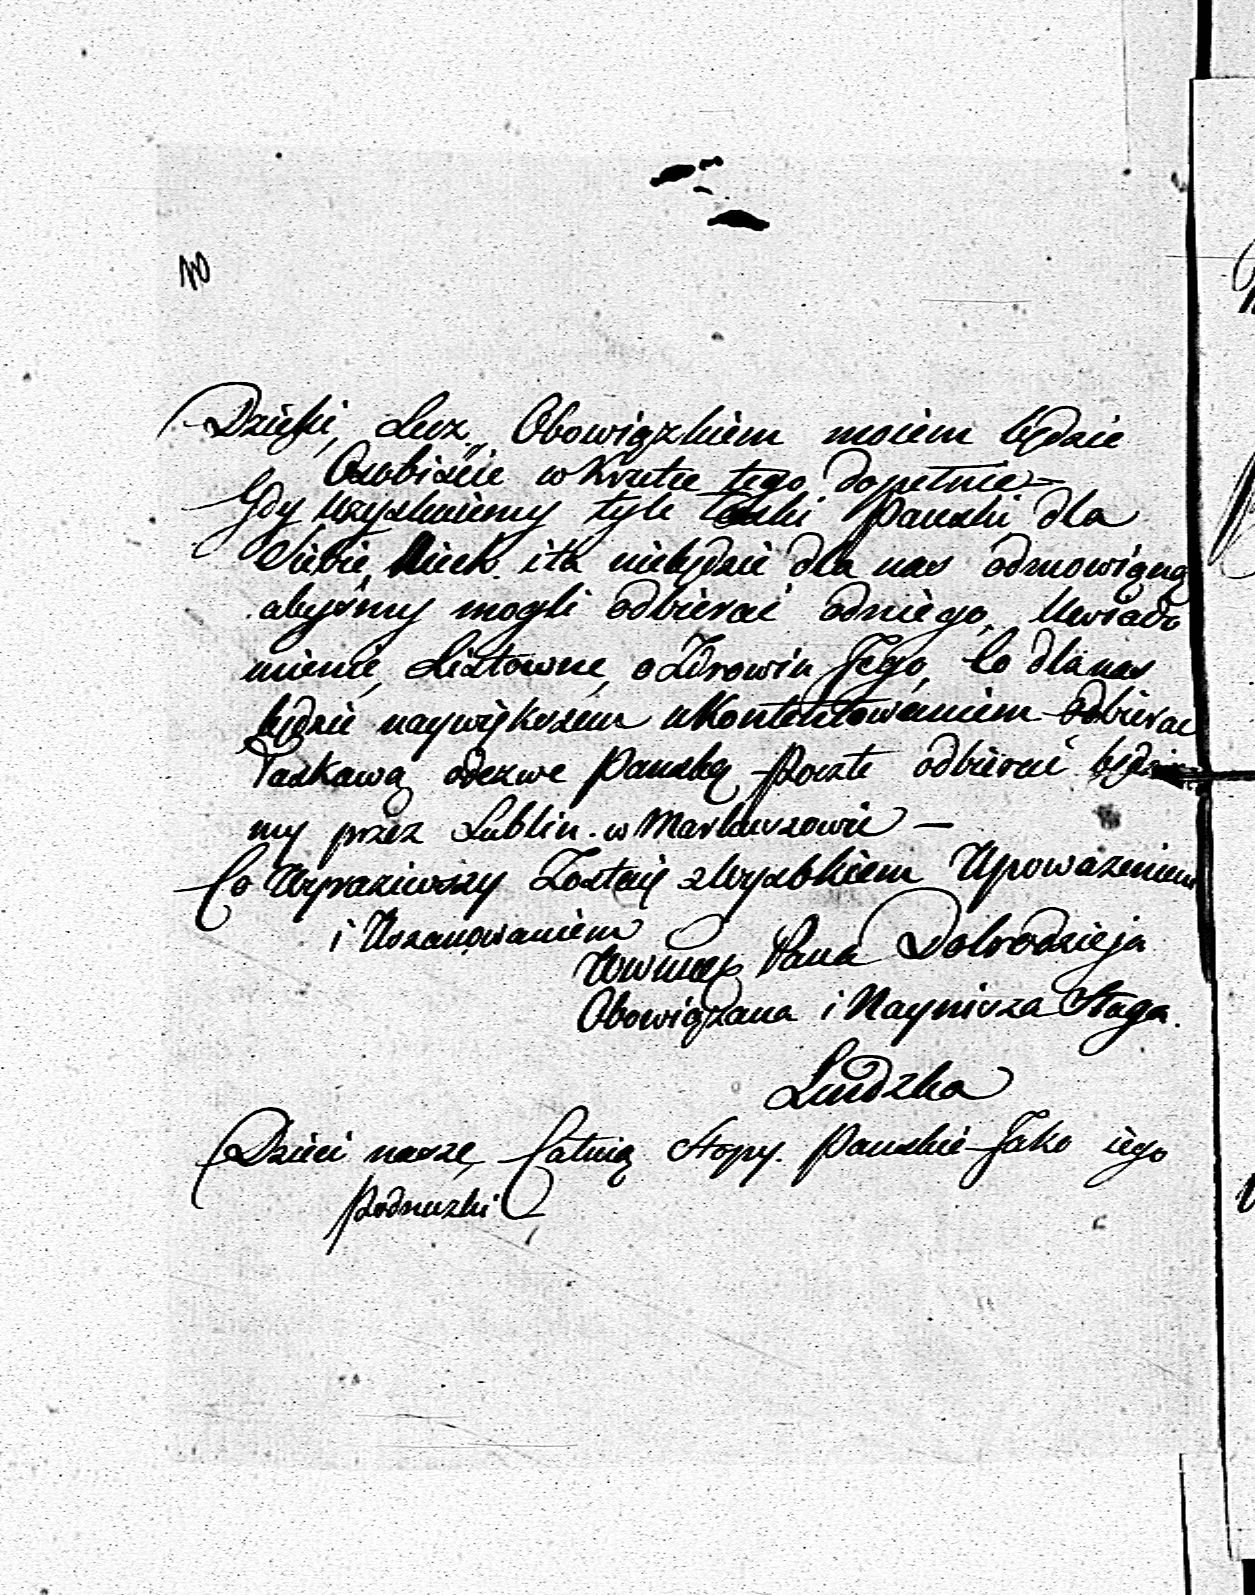 Dzięki, Lecz, Obowiązkiem moiem będzie
Osobiscie w Krutce tego dopełnie —
Gdy uzyskaiemy tyle Łaski Panski dla
Siebie, Niech ita niebędzie dla nas odmowiąną
abyśmy mogli odbierać odniego, Uwiado
mienie, Listowne, o Zdrowiu Jego, Co dla nas
będzie naywiększem ukontentowaniem odbierac
Łaskawą odezwe Panską Poczte odbierać będzie
my przez Lublin. w Markuszowie —
Co Wyraziwszy Zostaię zwysokiem Upoważeniem
i Uszanowaniem
Pana Dobrodzieja
Obowiązana i Naynisza Sługa.
Ludzka
Dzieci nasze, Całuią Stopy. Panskie Jako iego
Podnuszki